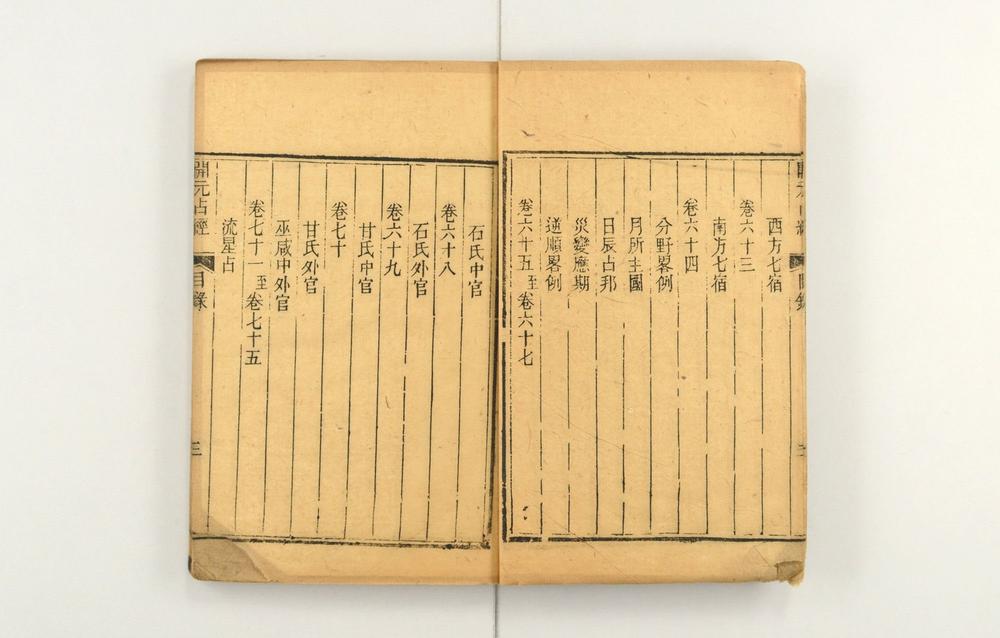 西方七宿
卷六十三
南方七宿
卷六十四
分野畧例
月所主國
日辰占邦
災變應期
逆順畧例
卷六十五至卷六十七
石氏中官
卷六十八
石氏外官
卷六十九
甘氏中官
卷七十
甘氏外官
巫咸中外官
卷七十一至卷七十五
流星占
開元占經 目錄 三